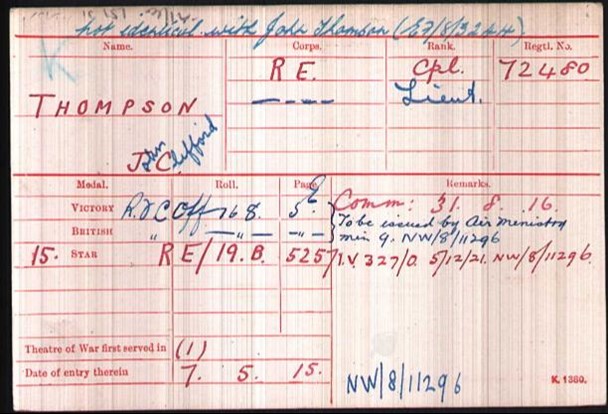 not identical with John Thomson (E7/8/3244)
Name. Corps. Rank. Regtl. No.
K
R E. Cpl. 72480
THOMPSON Lieut.
John Clifford
Medal. Roll. Page. Remarks.
VICTORY Off 768. Comm: 31. 8. 16.
To be issued by Air Ministry
BRITISH " min 9. NW/8/11296
15. STAR R E/19.B. 5257 I.V. 327/0. 5/12/21. NW/8/11296.
Theatre of War first served in (1)
Date of entry therein 7. 5. 15.
NW/8/11296
K. 1380.